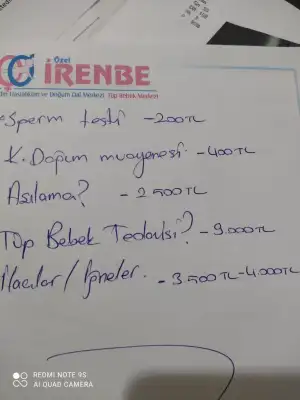 Özel
İRENBE
Kadın Hastalıkları ve Doğum Dal Merkezi Tüp Bebek Merkezi
Sperm testi - 200TL
K. Doğum muayenesi - 400TL
Aşılama? - 2500TL
Tüp Bebek Tedavisi? - 9.000TL
İlaçlar / İğneler. - 3.500TL-4000TL
REDMI NOTE 9S
AI QUAD CAMERA